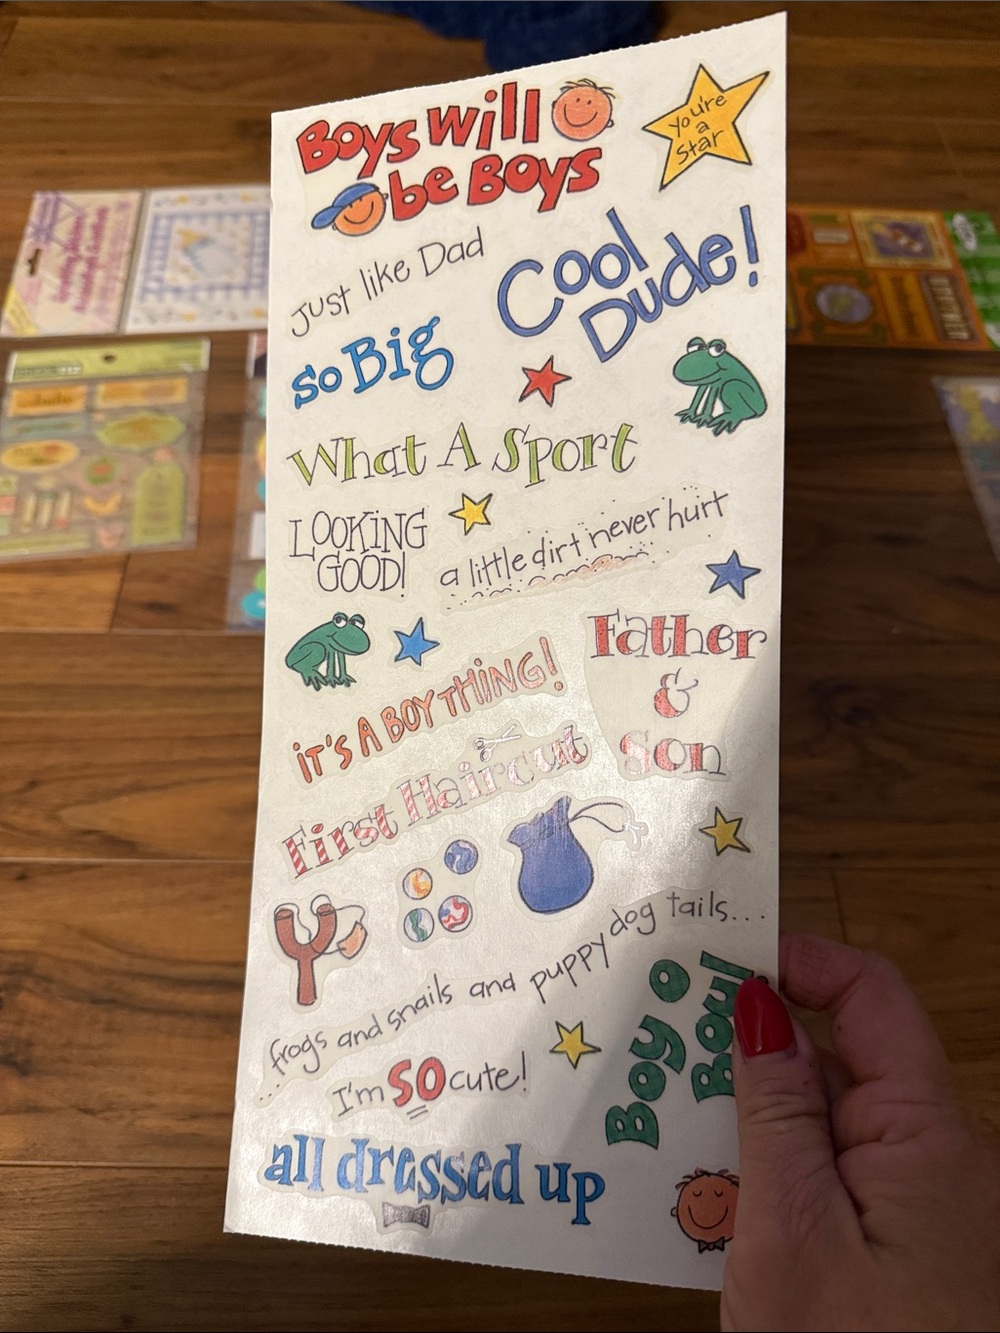 Boys will
be Boys
you're
a
Star
Just like Dad
Cool
Dude!
so Big
What A Sport
LOOKING
GOOD!
a little dirt never hurt
Father
&
Son
iT'S A BOY THiNG!
First Haircut
...frogs and snails and puppy dog tails...
I'm SO cute!
Boy o
Boy!
all dressed up